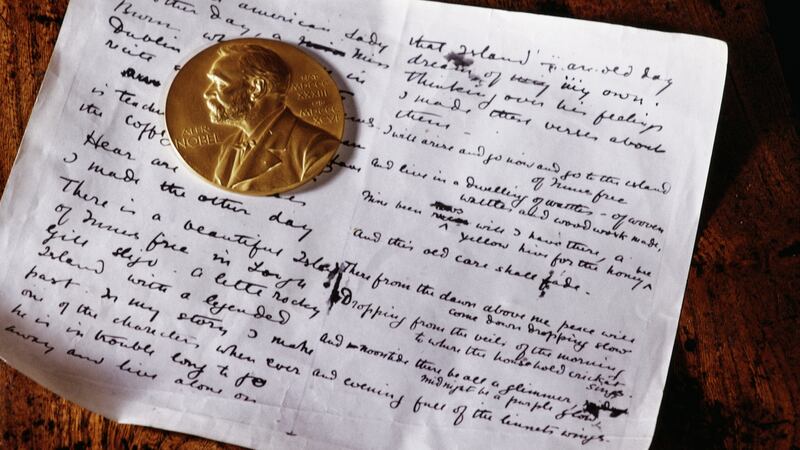 other day. american Lady
Burn.
Dublin who, a Miss
write a is
is teach
the coffee
Hear are
I made the other day
There is a beautiful Island
of Innis free in Lough
Gill Sligo. a little rocky
Island with a legended
past. In my story I make
one of the charecters when ever
he is in trouble long to go
away and live alone on
ALFR.
NOBEL
NAT.
MDCCC
XXXIII
OB.
MDCCC
XCVI
that Island — an old day
dream of my own.
Thinking over his feelings
I made these verses about
them —
I will arise and go now and go to the island
of Innis free
and live in a dwelling of wattles — of woven
wattles and wood work made,
Nine bean will I have there, a
yellow hive for the honey
And this old care shall fade.
There from the dawn above me peace will
come down dropping slow
Dropping from the veils of the morning
to where the household cricket
sings.
and noontide there be all a glimmer,
midnight be a purple glow
and evening full of the linnets wings.